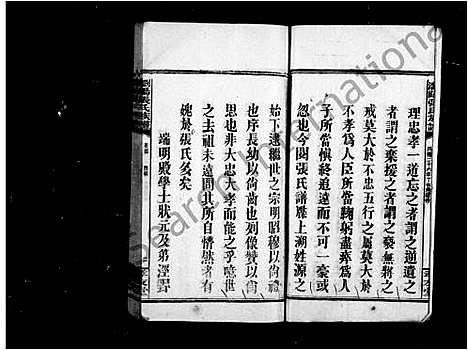 理忠孝一道忘之者謂之逆遺之
者謂之棄援之者謂之褻無將之
戒莫大於不忠五行之屬莫大於
不孝爲人臣所當鞠躬盡瘁爲人
子所當愼終追遠而不可一毫或
忽也今閱張氏譜歷上溯姓源之
始下逮繼世之宗明昭穆以尙禮
也序長以尙齒也列像贊以尙
思也非大忠大孝而能之乎噫世
之去祖未遠問其所自懵然者有
媿於張氏多矣
端明殿學士狀元及第